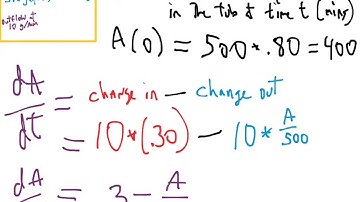 outflow at
10 g/min
in the tub at time t (mins)
A(0) = 500 * .80 = 400
dA/dt = change in — change out
= 10 * (.30) — 10 * A/500
dA = 3 - A